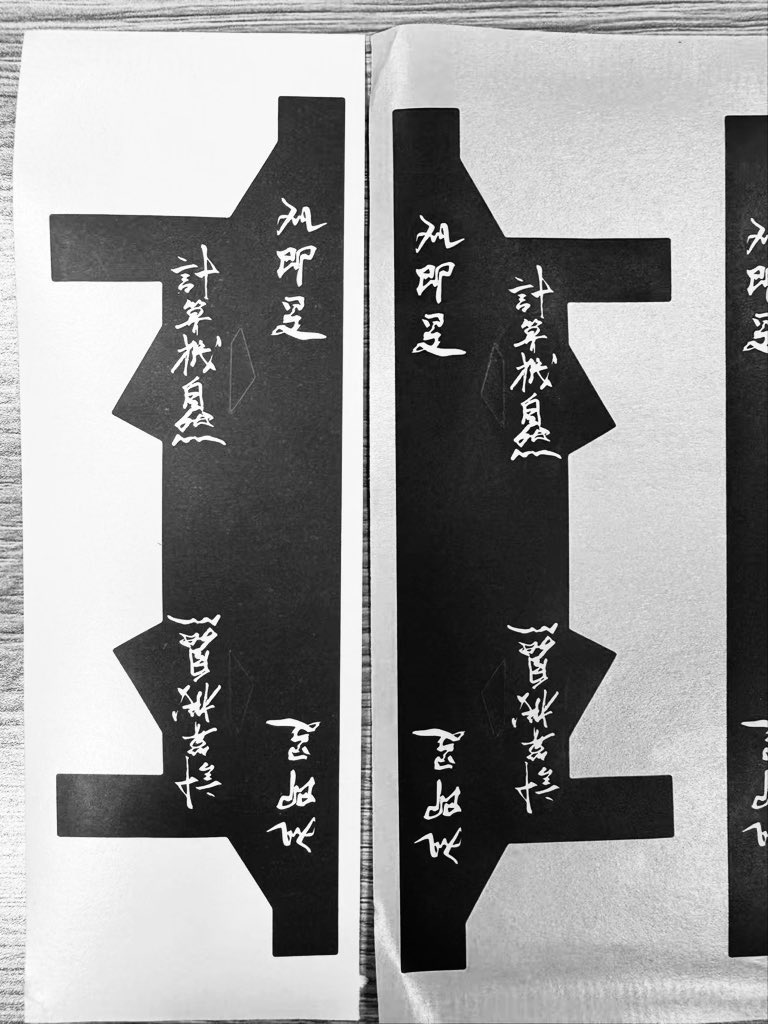 即是
計算機自然
計算機自然
即是
計算機自然
即是
計算機自然
即是